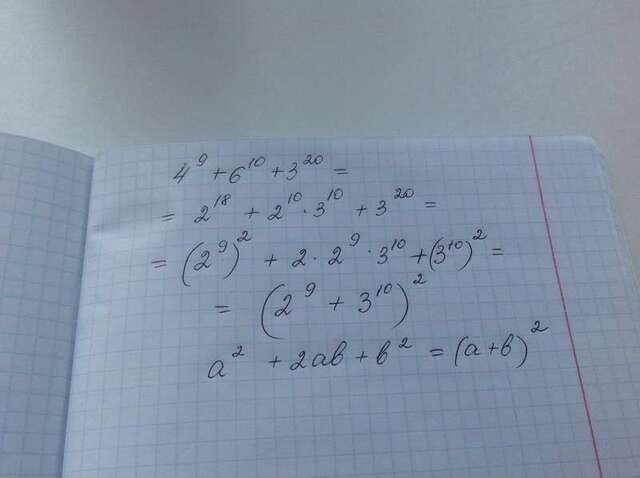 4^9 + 6^10 + 3^20 =
= 2^18 + 2^10 · 3^10 + 3^20 =
= (2^9)^2 + 2 · 2^9 · 3^10 + (3^10)^2 =
= (2^9 + 3^10)^2
a^2 + 2ab + b^2 = (a+b)^2